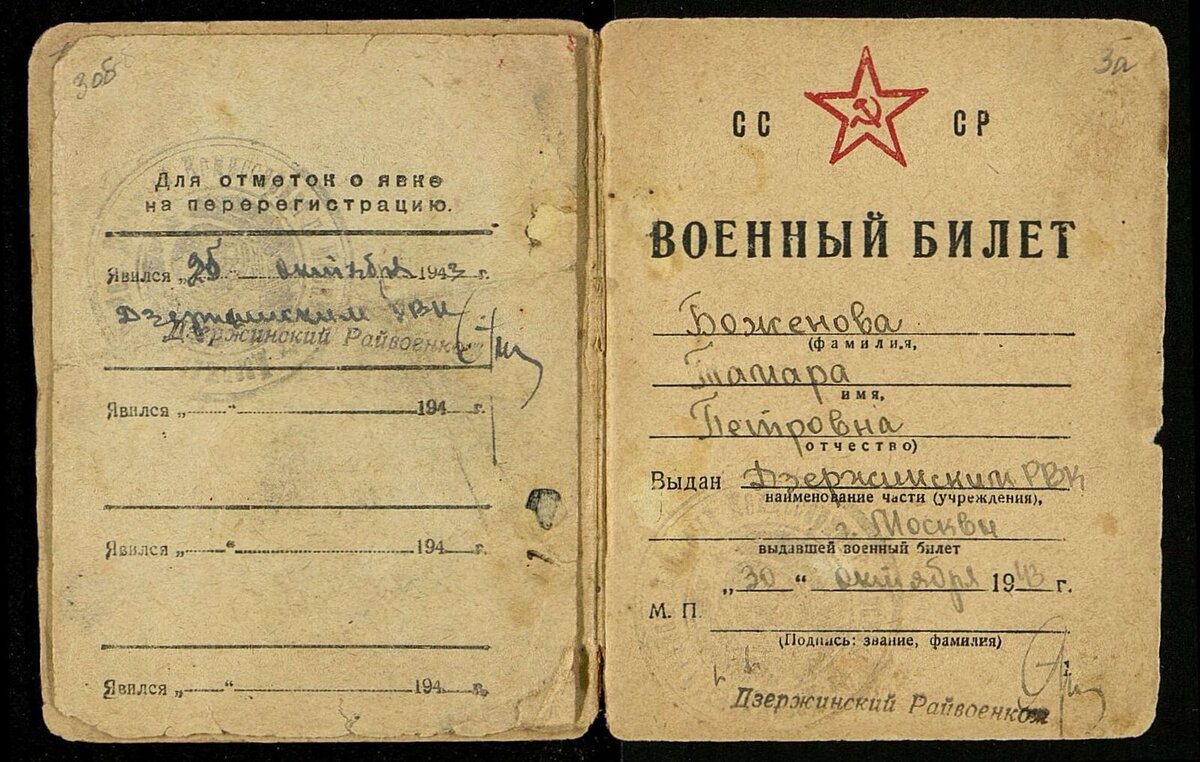 3об
Для отметок о явке
на перерегистрацию.
Явился „26“ октября 1943 г.
Дзержинским РВК
Дзержинский Райвоенком
Явился „ “ 194 г.
Явился „ “ 194 г.
Явился „ “ 194 г.
3а
СС СР
ВОЕННЫЙ БИЛЕТ
Боженова
(фамилия,
Тамара
имя,
Петровна
отчество)
Выдан Дзержинским РВК
наименование части (учреждения),
г. Москвы
выдавшей военный билет
„30“ октября 1943 г.
М. П.
(Подпись: звание, фамилия)
Дзержинский Райвоенком